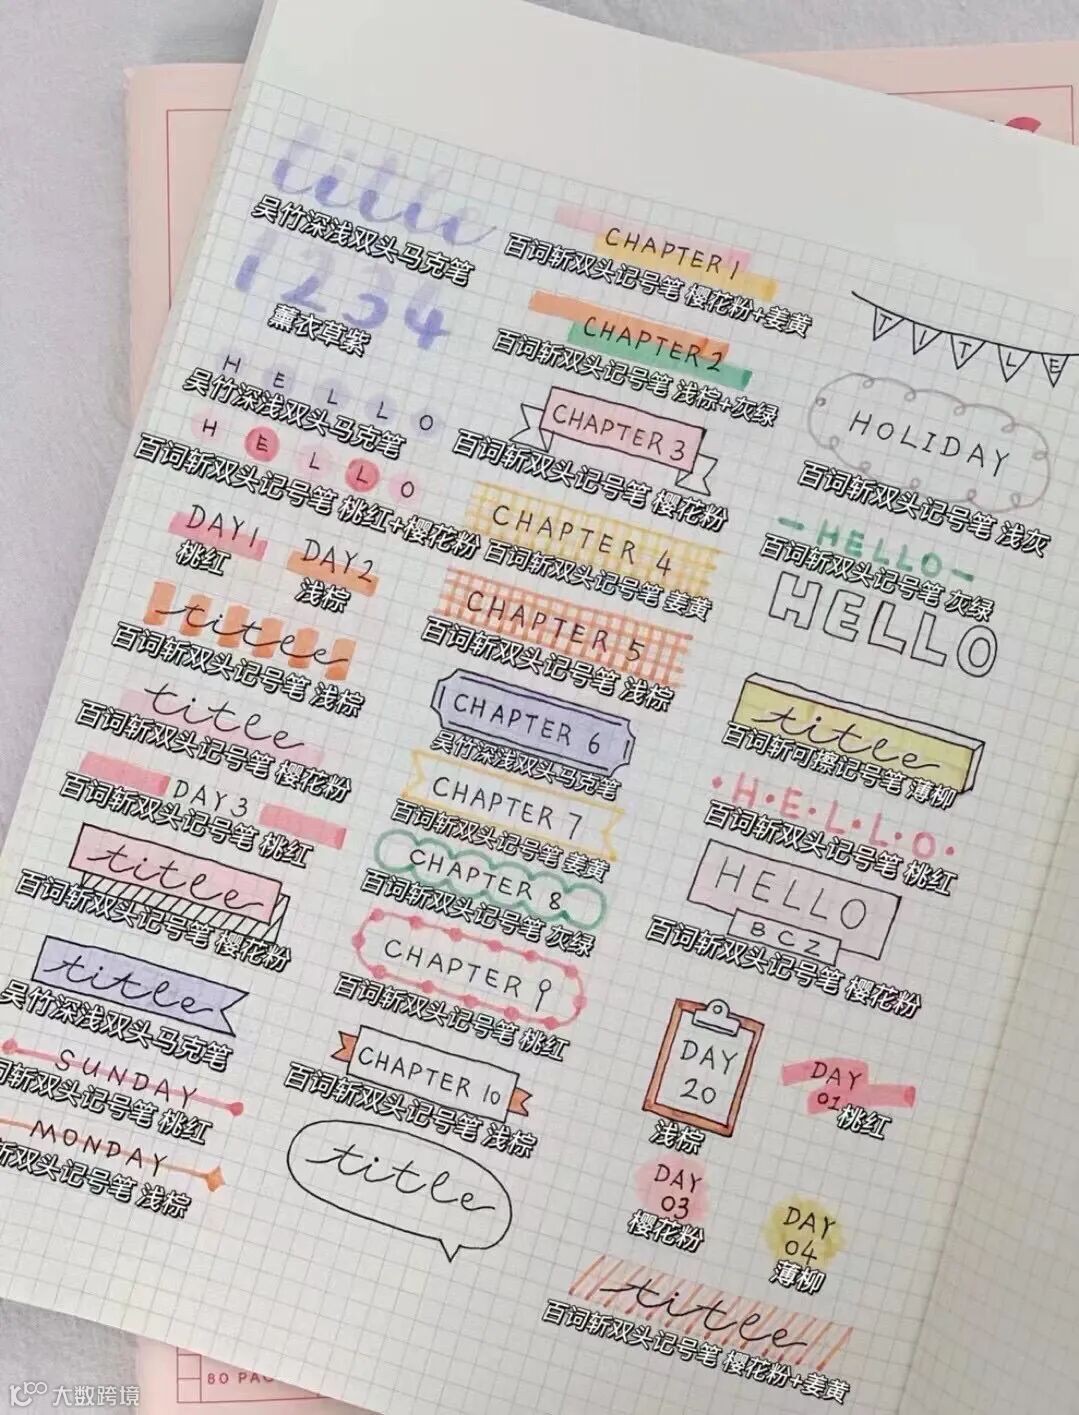 title
吴竹深浅双头马克笔
1234
薰衣草紫
HELLO
吴竹深浅双头马克笔
HELLO
百词斩双头记号笔 桃红+樱花粉
DAY1
桃红
DAY2
浅棕
title
百词斩双头记号笔 浅棕
title
百词斩双头记号笔 樱花粉
DAY3
百词斩双头记号笔 桃红
title
百词斩双头记号笔 樱花粉
title
吴竹深浅双头马克笔
SUNDAY
词斩双头记号笔 桃红
MONDAY
斩双头记号笔 浅棕
CHAPTER 1
百词斩双头记号笔 樱花粉+姜黄
CHAPTER 2
百词斩双头记号笔 浅棕+灰绿
CHAPTER 3
百词斩双头记号笔 樱花粉
CHAPTER 4
百词斩双头记号笔 姜黄
CHAPTER 5
百词斩双头记号笔 浅棕
CHAPTER 6
吴竹深浅双头马克笔
CHAPTER 7
百词斩双头记号笔 姜黄
CHAPTER 8
百词斩双头记号笔 灰绿
CHAPTER 9
百词斩双头记号笔 桃红
CHAPTER 10
百词斩双头记号笔 浅棕
title
TITLE
HOLIDAY
百词斩双头记号笔 浅灰
-HELLO-
百词斩双头记号笔 灰绿
HELLO
title
百词斩可擦记号笔 薄柳
·H·E·L·L·O·
百词斩双头记号笔 桃红
HELLO
BCZ
百词斩双头记号笔 樱花粉
DAY
20
浅棕
DAY
01
桃红
DAY
03
樱花粉
DAY
04
薄柳
title
百词斩双头记号笔 樱花粉+姜黄
80 PAG
大数跨境